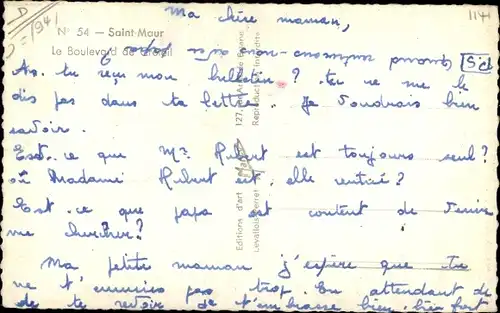 Ma chère maman,
1141
D = 1941
N° 54 — Saint-Maur
Le Boulevard de Créteil
S'Cl
As-tu reçu mon bulletin ? tu ne me le
dis pas dans ta lettre. Je voudrais bien
savoir.
Est-ce que Mr Hubert est toujours seul?
où Madame Hubert est, elle rentrée?
Est-ce que papa est content de venir
me chercher?
Ma petite maman j'espère que tu
ne t'ennuies pas trop. En attendant de
de te revoir je t'embrasse bien, bien fort
Editions d'art
Levallois-Perret
127,
Reproduction Interdite